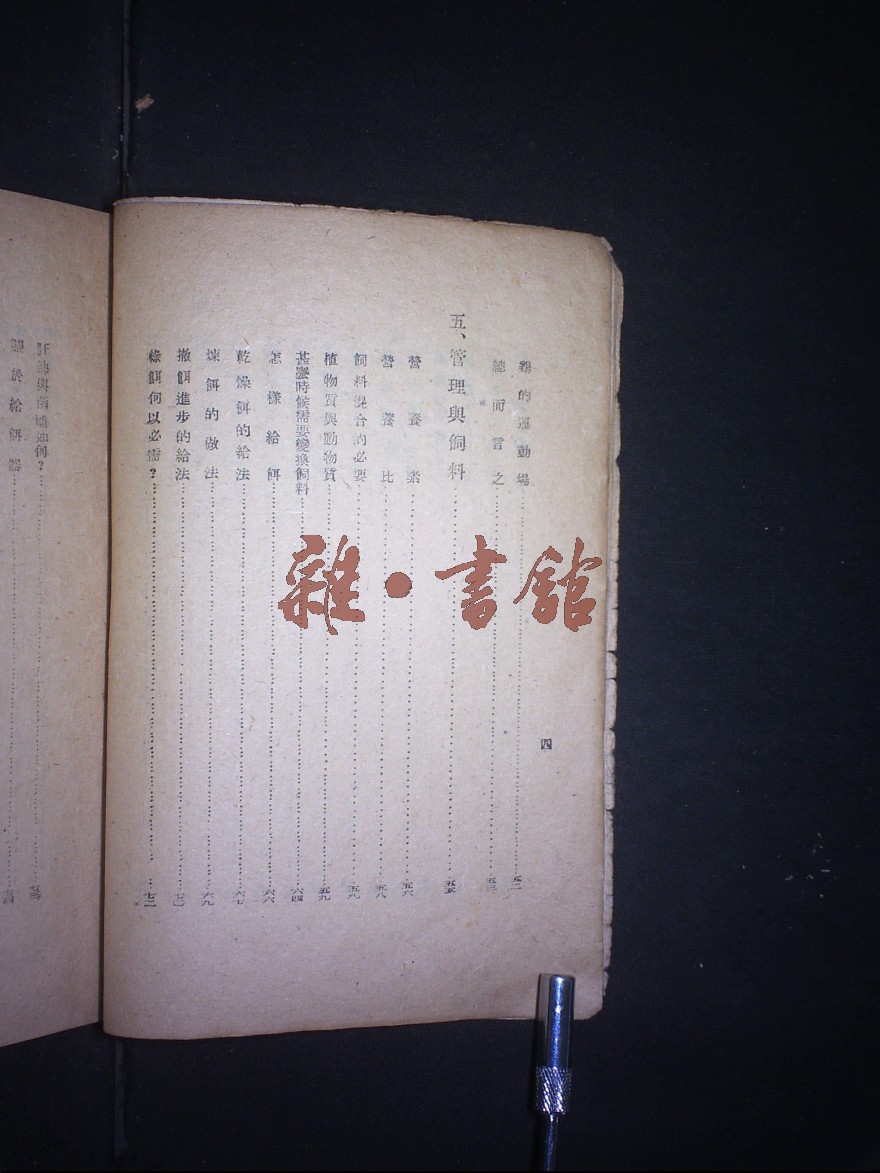 鷄的運動場……五二
總而言之……五三
五、管理與飼料……五五
營養素……五六
營養比……五八
飼料混合的必要……五九
植物質與動物質……五九
甚麼時候需要變換飼料……六四
怎樣給餌……六六
乾燥餌的給法……六七
煉餌的做法……六九
撤餌進步的給法……七〇
綠餌何以必需？……七二
四
如何？
於給餌器
雜•書館